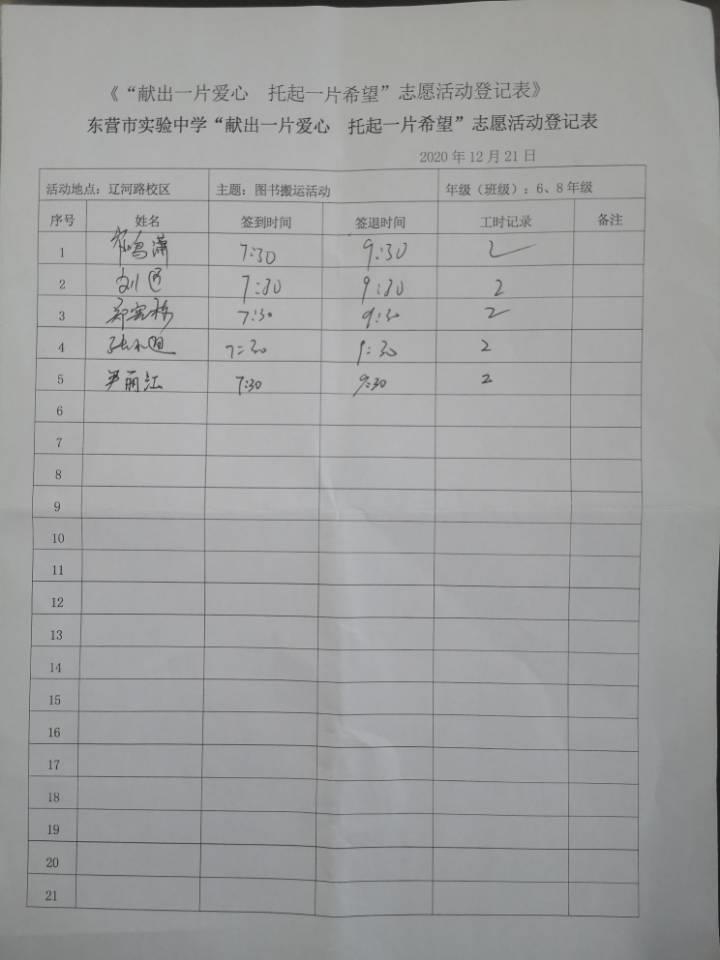 《“献出一片爱心 托起一片希望”志愿活动登记表》
东营市实验中学“献出一片爱心 托起一片希望”志愿活动登记表
2020 年 12 月 21 日
活动地点：辽河路校区 主题：图书搬运活动 年级（班级）：6、8 年级
序号 姓名 签到时间 签退时间 工时记录 备注
1 鸣潇 7:30 9:30 2
2 刘 7:30 9:30 2
3 郑 7:30 9:30 2
4 张 7:30 9:30 2
5 尹丽江 7:30 9:30 2
6
7
8
9
10
11
12
13
14
15
16
17
18
19
20
21